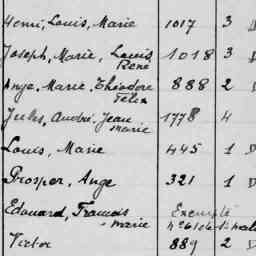 Henri, Louis, Marie 1017 3
Joseph, Marie, Louis, 1018 3
René
Ange, Marie, Théodore 888 2
Félix
Jules, André, Jean 1778 4
Marie
Louis, Marie 445 1 D
Prosper, Ange 321 1 D
Edouard, François Exempté
Marie
Victor 889 2 D